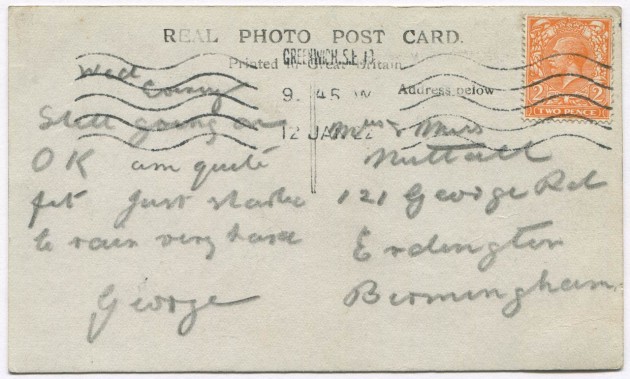 REAL PHOTO POST CARD.
GREENWICH. S.E.
Printed in Great Britain
9. 45
12 JAN 22
Address below
2 2
TWO PENCE
Wed
Evening
Still going on
OK am quite
fit Just started
to rain very hard
George
& Miss
Nuttall
121 George Rd
Erdington
Birmingham